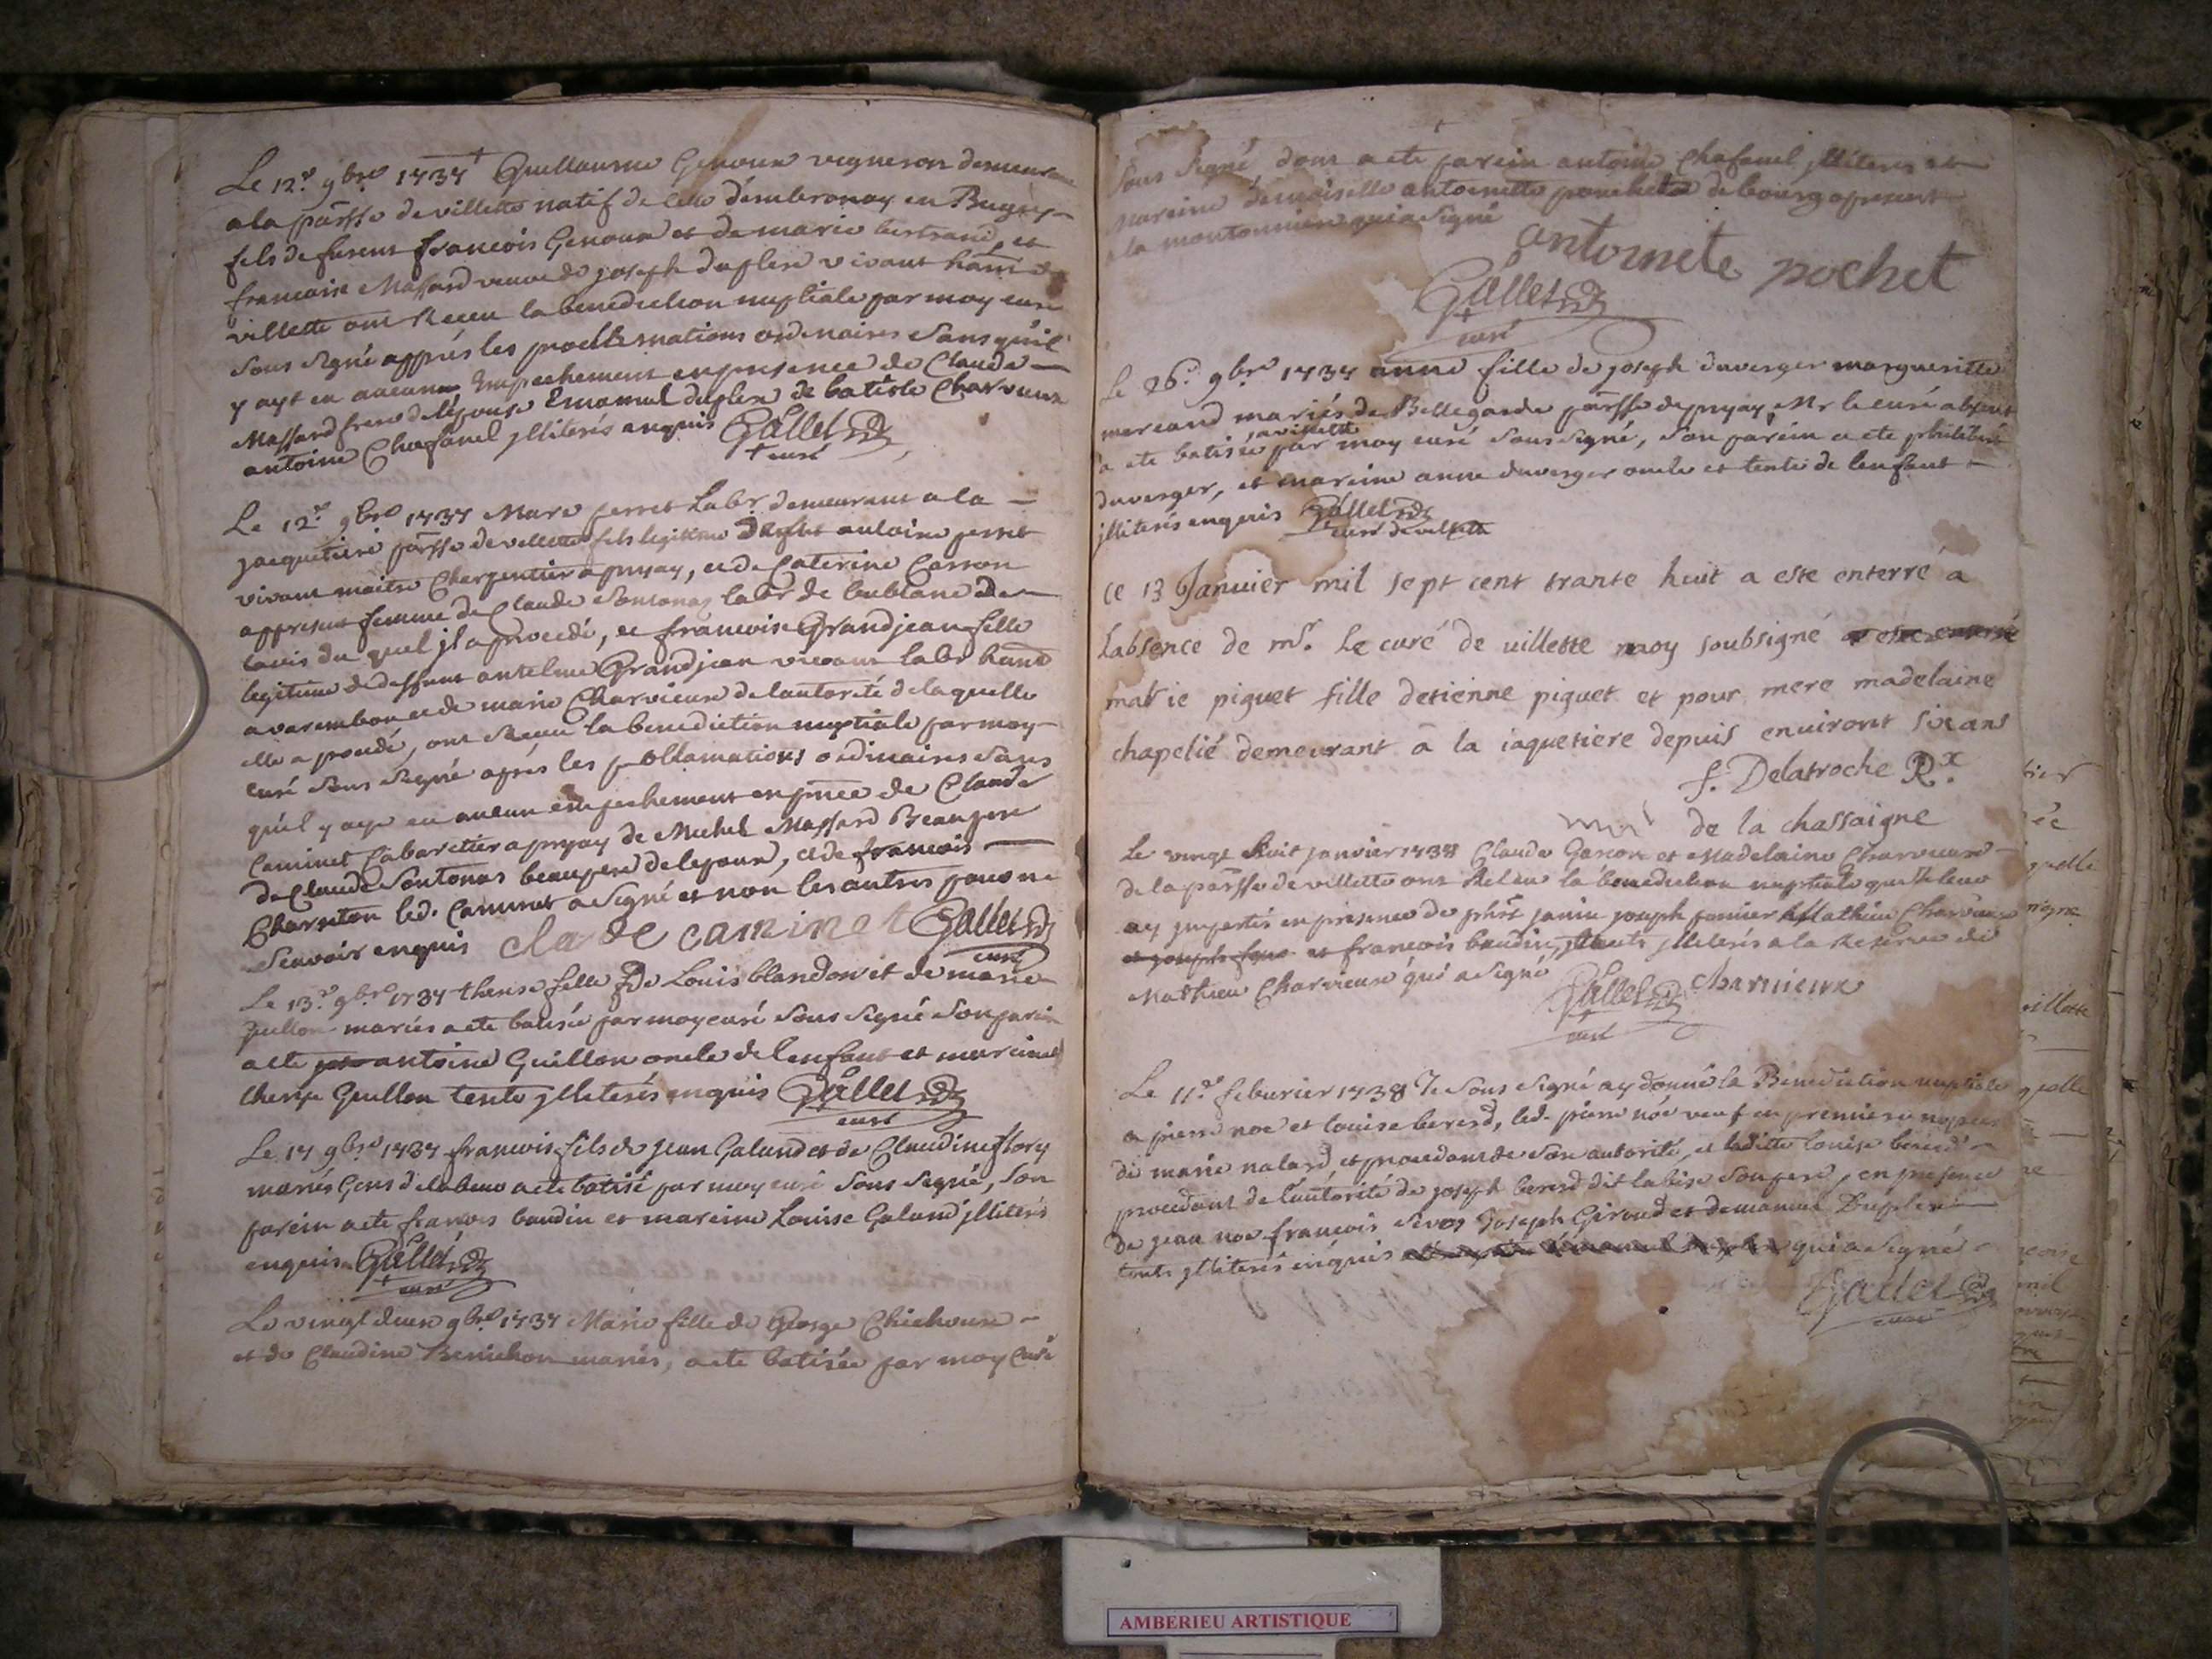 Le 12e 9bre 1737 Guillaume Genoux vigneron demeurant
a la parsse de villette natif de celle d'embronay en Bugey
fils de furent francois Genoux et de marie bertrand, et
francoise Massard veuve de joseph duplex vivant hant de
villette ont Receu la benediction nuptiale par moy curé
sous signé apprés les proclamations ordinaires sans qu'il
y ayt eu aucun Empechement en presence de Claude
Massard frere de l'epouse Emanuel duplex de batiste Charvieux
antoine Chafanel jlliterés enquis Gallet
curé
Le 12e 9bre 1737 Marc perret Labr demeurant a la
jacquetiere parsse de villette fils legitime de fut antoine perret
vivant maitre Chargentier a pryay, et de Caterine Carron
appresent femme de Claude Sontonas labr de leublanc de
lavis du quel jl a procedé, et francoise Grandjean fille
legitime de deffunt antelme Grandjean vivant labr hant
a varembon et de marie Charvieux de lautorité de laquelle
elle a procedé, ont Receu la benediction nuptiale par moy
curé sous signé aprés les proclamations ordinaires sans
qu'il y aye eu aucun empechement en pnce de Claude
Caminet Cabaretier a pryay de Michel Massard Beaupere
de Claude Sontonas beaupere de lepoux, et de francois
Charreton led. Caminet a signé et non les autres pour ne
scavoir enquis claude caminet Gallet
curé
Le 13e 9bre 1737 therese fille de Louis blandon et de marie
Guillon mariés a ete batisée par moy curé sous signé son parein
a ete antoine Guillon oncle de lenfant et mareine
therese Guillon tente jlliterés enquis Gallet
curé
Le 17 9bre 1737 francois fils de jean Galand et de Claudine flory
mariés Gens de labeur a ete batisé par moy curé sous signé, son
parein a ete francois baudin et mareine Louise Galand jlliterés
enquis Gallet
curé
Le vingt deux 9bre 1737 Marie fille de George Chichoux
et de Claudine Benichon mariés, a ete batisée par moy curé
sous signé, dont a ete parein antoine Chafanel jlliteré et
mareine demoiselle antoinette pouchet de bourg apresent
a la montonniere qui a signé
antoinete pochet
Gallet
curé
Le 26e 9bre 1737 anne fille de joseph duverger marguerite
mercand mariés de Bellegarde parsse de pryay Mr le curé absent
a ete batisée a villette par moy curé sous signé, son parein a ete philibert
duverger, et mareine anne duverger oncle et tente de lenfant
jlliterés enquis Gallet
curé de villette
ce 13 Janvier mil sept cent trante huit a este enterré á
Labsence de mr. Le curé de villette moy soubsigné a este enterré
marie piguet fille detienne piguet et pour mere madelaine
chapelié demeurant a la iaquetiere depuis environt six ans
f. Delatroche Rx.
de la chassaigne
Le vingt huit janvier 1738 Claude Gascon et Madelaine Charvieux
de la parsse de villette ont Receu la benediction nuptiale que je leur
ay jmpertis en presence de phirt janin joseph fornier Mathieu Charvieux
et joseph et francois baudin, touts jlliterés a la Reserve de
Mathieu Charvieux qui a signé Gallet charvieux
curé
Le 11e feburier 1738 Je sous signé ay donné la Benediction nuptiale
a pierre noe et louise bererd, led. pierre noé veuf en premiere nopces
de marie nalard et procedant de son autorité, et laditte louise bererd
procedant de l'autorité de joseph bererd dit labise son pere, en presence
de jean noe francois sevoz Joseph Giroud et demanuel Duplex
touts jlliterés enquis qui a signé
Gallet
curé
AMBERIEU ARTISTIQUE